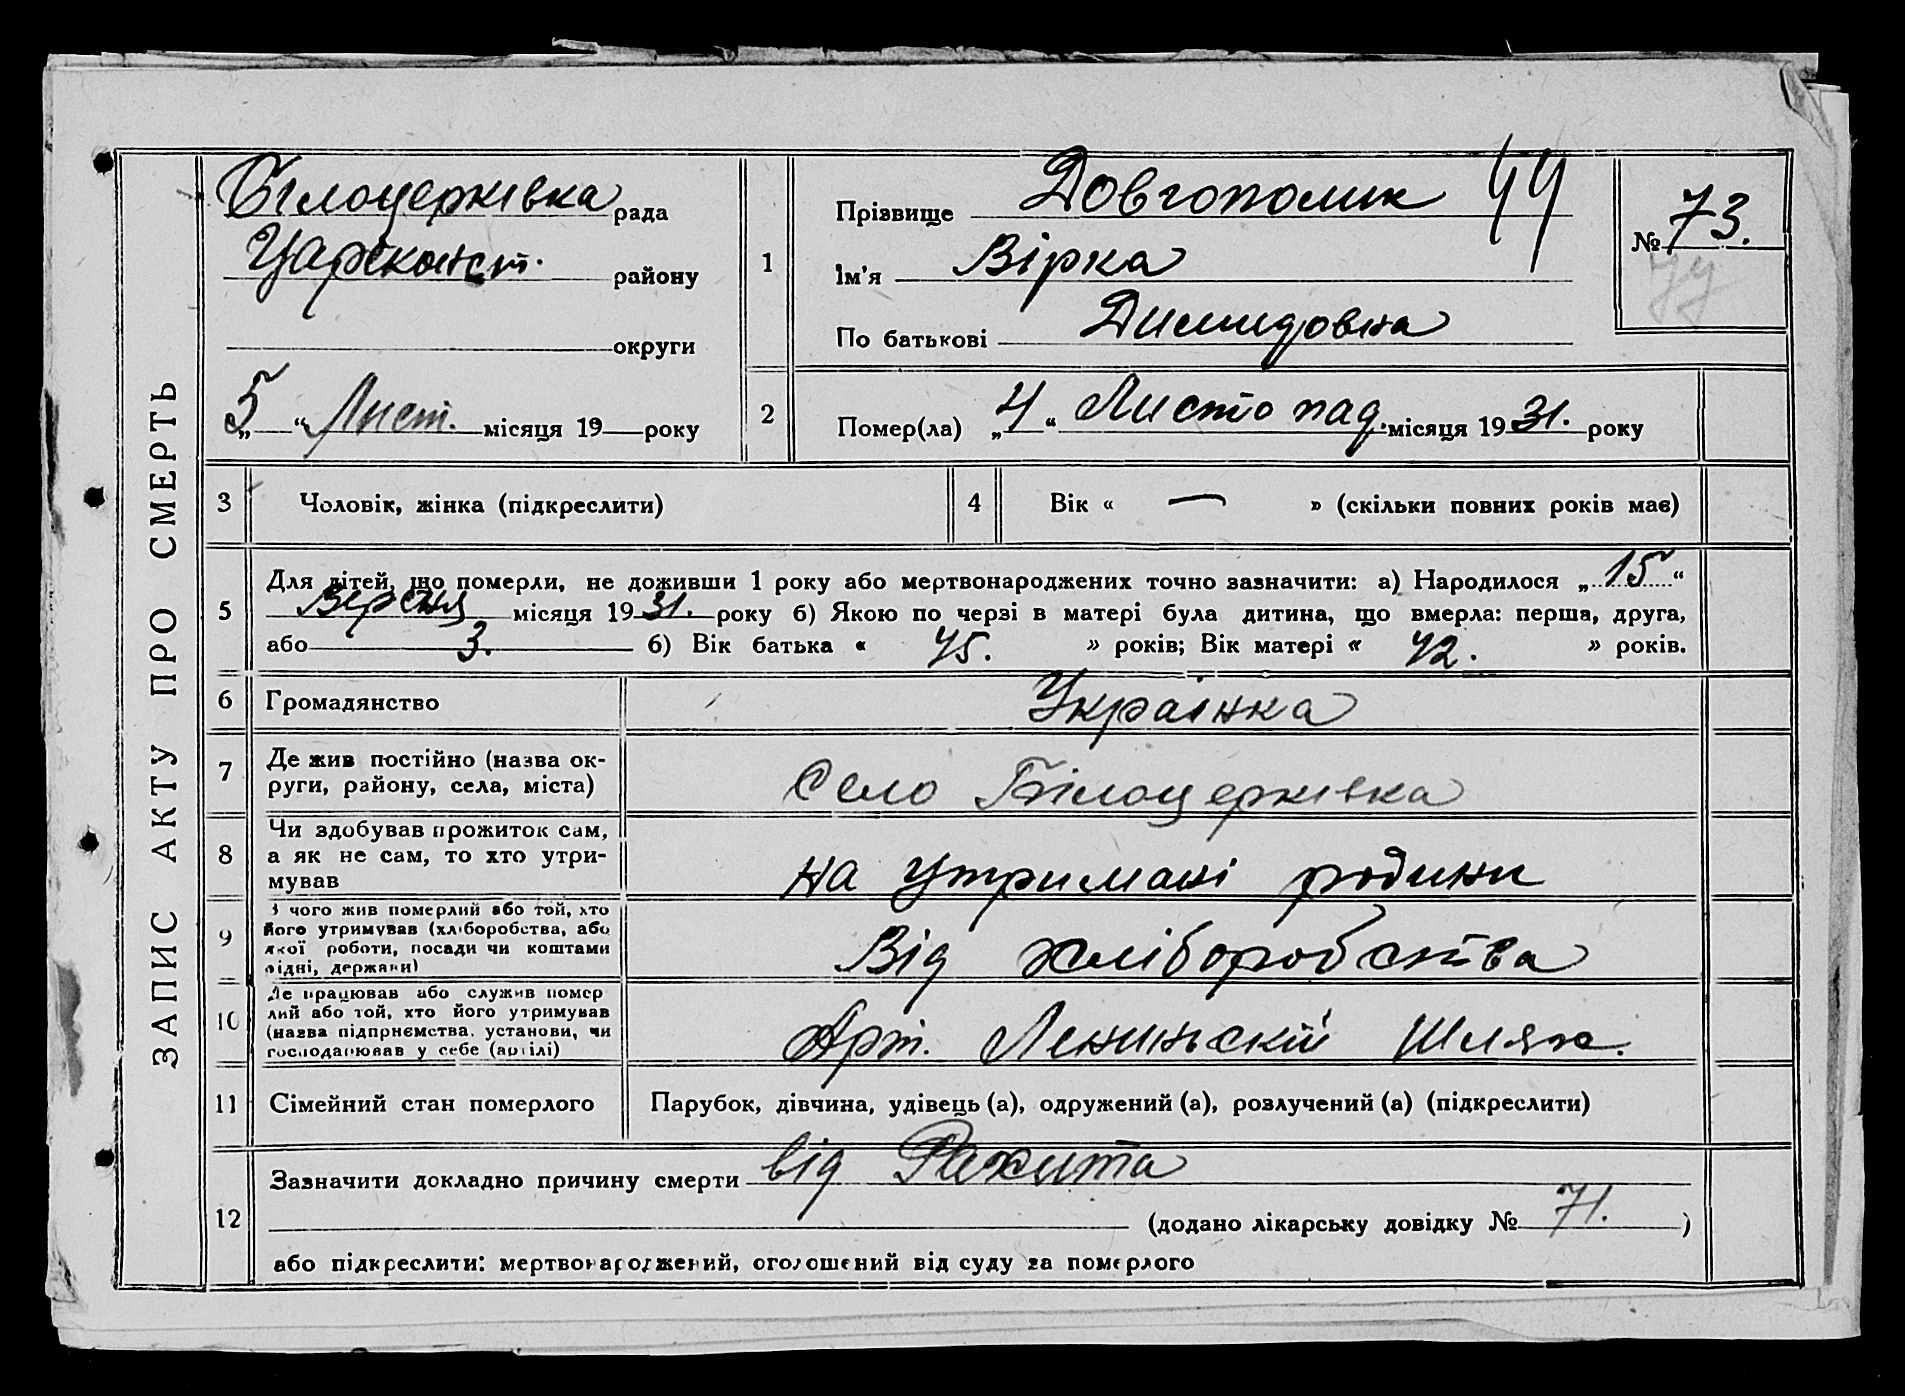 ЗАПИС АКТУ ПРО СМЕРТЬ
Білоцерківка рада
Царекконст. району
округи
„5“ Лист. місяця 19 року
1
Прізвище Довгополик 44
Ім'я Вірка
По батькові Димидовна
№ 73.
2
Помер(ла) „4“ Листопад. місяця 1931. року
3 Чоловік, жінка (підкреслити)
4 Вік « — » (скільки повних років має)
5
Для дітей, що померли, не доживши 1 року або мертвонароджених точно зазначити: а) Народилося „15“
Версня місяця 1931. року б) Якою по черзі в матері була дитина, що вмерла: перша, друга,
або 3. б) Вік батька « 45. » років; Вік матері « 42. » років.
6 Громадянство Українка
7 Де жив постійно (назва ок-
руги, району, села, міста) село Білоцерківка
8 Чи здобував прожиток сам,
а як не сам, то хто утри-
мував на утримані родини
9 З чого жив померлий або той, хто
його утримував (хліборобства, або
якої роботи, посади чи коштами
рідні, держави) Від хліборобства
10 Де працював або служив помер
лий або той, хто його утримував
(назва підприємства, установи, чи
господарював у себе (артілі) Арт. Лениньский Шлях.
11 Сімейний стан померлого Парубок, дівчина, удівець (а), одружений (а), розлучений (а) (підкреслити)
12
Зазначити докладно причину смерти від Рахита
(додано лікарську довідку № 71. )
або підкреслити: мертвонароджений, оголошений від суду за померлого